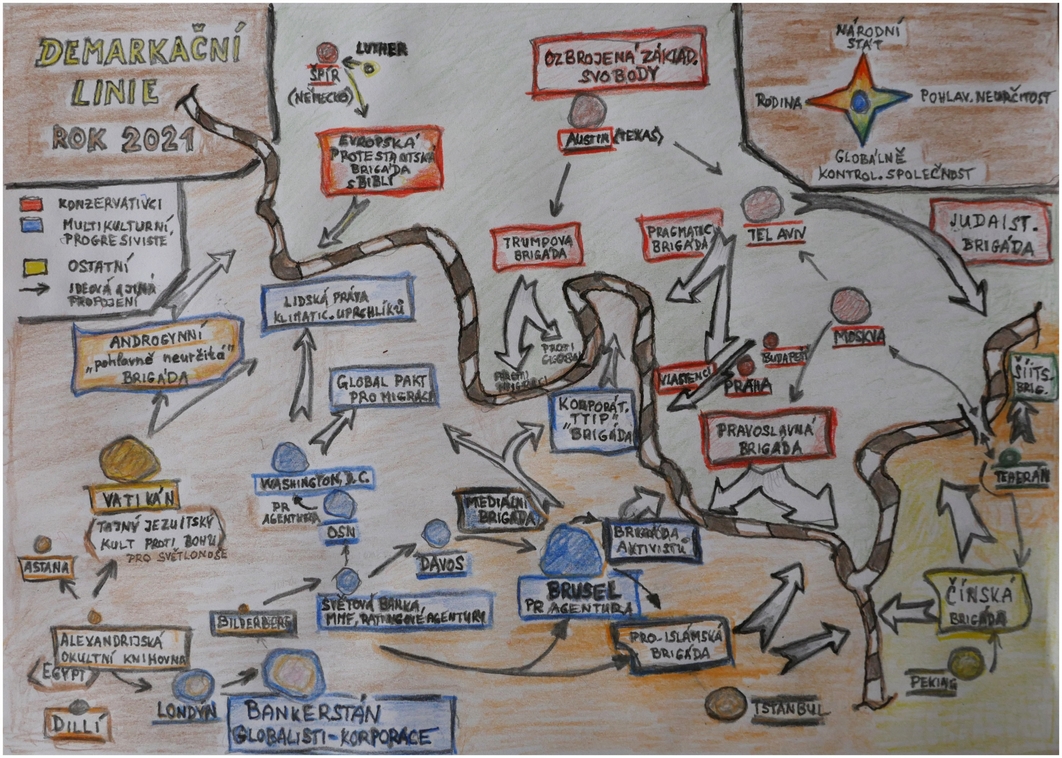 DEMARKAČNÍ
LINIE
ROK 2021
KONZERVATIVCI
MULTIKULTURNÍ,
PROGRESIVISTÉ
OSTATNÍ
IDEOVÁ A JINÁ
PROPOJENÍ
LUTHER
ŠPÍR
(NĚMECKO)
EVROPSKÁ
PROTESTANTSKÁ
BRIGÁDA
S BIBLÍ
OZBROJENÁ ZÁKLAD.
SVOBODY
AUSTIN (TEXAS)
NÁRODNÍ
STÁT
RODINA
POHLAV. NEURČITOST
GLOBÁLNĚ
KONTROL. SPOLEČNOST
TRUMPOVA
BRIGÁDA
PRAGMATIC.
BRIGÁDA
TEL AVIV
JUDAIST.
BRIGÁDA
LIDSKÁ PRÁVA
KLIMATIC. UPRCHLÍKŮ
ANDROGYNNÍ
"pohlavně neurčitá"
BRIGÁDA
PROTI
GLOBAL.
MOSKVA
BUDAPEŠŤ
VLASTENCI
PRAHA
ŠÍITS.
BRIG.
GLOBAL PAKT
PRO MIGRACI
KORPORÁT.
"TTIP"
BRIGÁDA
PRAVOSLAVNÁ
BRIGÁDA
TEHERÁN
VATIKÁN
(TAJNÝ JEZUITSKÝ
KULT PROTI BOHU)
PRO SVĚTLONOŠE
WASHINGTON, D.C.
PR
AGENTURA
OSN
MEDIÁLNÍ
BRIGÁDA
DAVOS
BRIGÁDA
AKTIVISTŮ
ASTANA
BRUSEL
PR AGENTURA
SVĚTOVÁ BANKA,
MMF, RATINGOVÉ AGENTURY
ČÍNSKÁ
BRIGÁDA
BILDERBERG
ALEXANDRIJSKÁ
OKULTNÍ KNIHOVNA
(EGYPT)
PRO-ISLÁMSKÁ
BRIGÁDA
PEKING
DILLÍ
LONDÝN
BANKERSTÁN
GLOBALISTI-KORPORACE
ISTANBUL